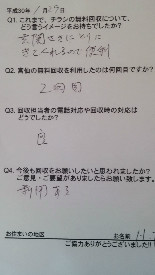 平成30年 1月29日
Q1. これまで、チラシの無料回収について、
どう言うイメージをお持ちでしたか？
玄関先まで とりに
きてくれるので 便利
Q2. 其他の無料回収を利用したのは何回目ですか？
2回目
Q3. 回収担当者の電話対応や回収時の対応は
どうでしたか？
良
Q4. 今後も回収をお願いしたいと思われましたか？
ご意見・ご要望がありましたらお願い致します。
ある
お住まいの地区
お名前 H.
ご協力ありがとうございました!!